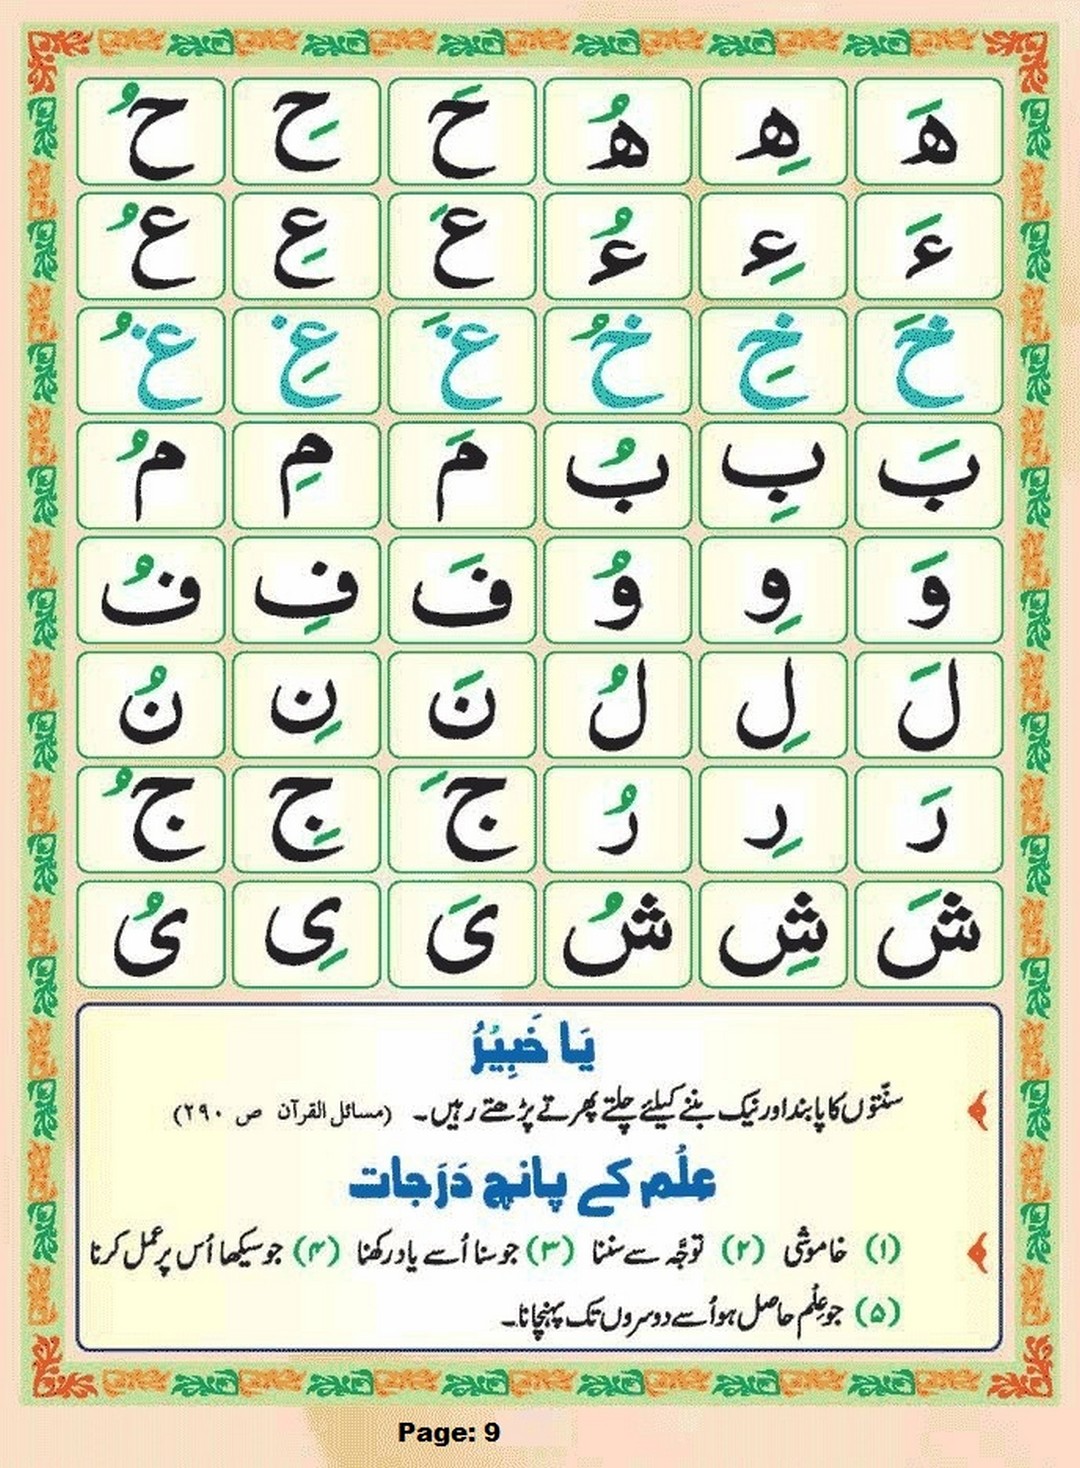 هَ هِ هُ حَ حِ حُ
ءَ ءِ ءُ عَ عِ عُ
خَ خِ خُ غَ غِ غُ
بَ بِ بُ مَ مِ مُ
وَ وِ وُ فَ فِ فُ
لَ لِ لُ نَ نِ نُ
رَ رِ رُ جَ جِ جُ
شَ شِ شُ یَ یِ یُ
یَا خَبِیْرُ
سنّتوں کا پابند اور نیک بننے کیلئے چلتے پھرتے پڑھتے رہیں۔ (مسائل القرآن ص ۲۹۰)
عِلْم کے پانچ دَرَجات
(۱) خاموشی (۲) توجُّہ سے سننا (۳) جو سنا اُسے یاد رکھنا (۴) جو سیکھا اُس پر عمل کرنا
(۵) جو عِلْم حاصل ہوا اُسے دوسروں تک پہنچانا۔
Page: 9